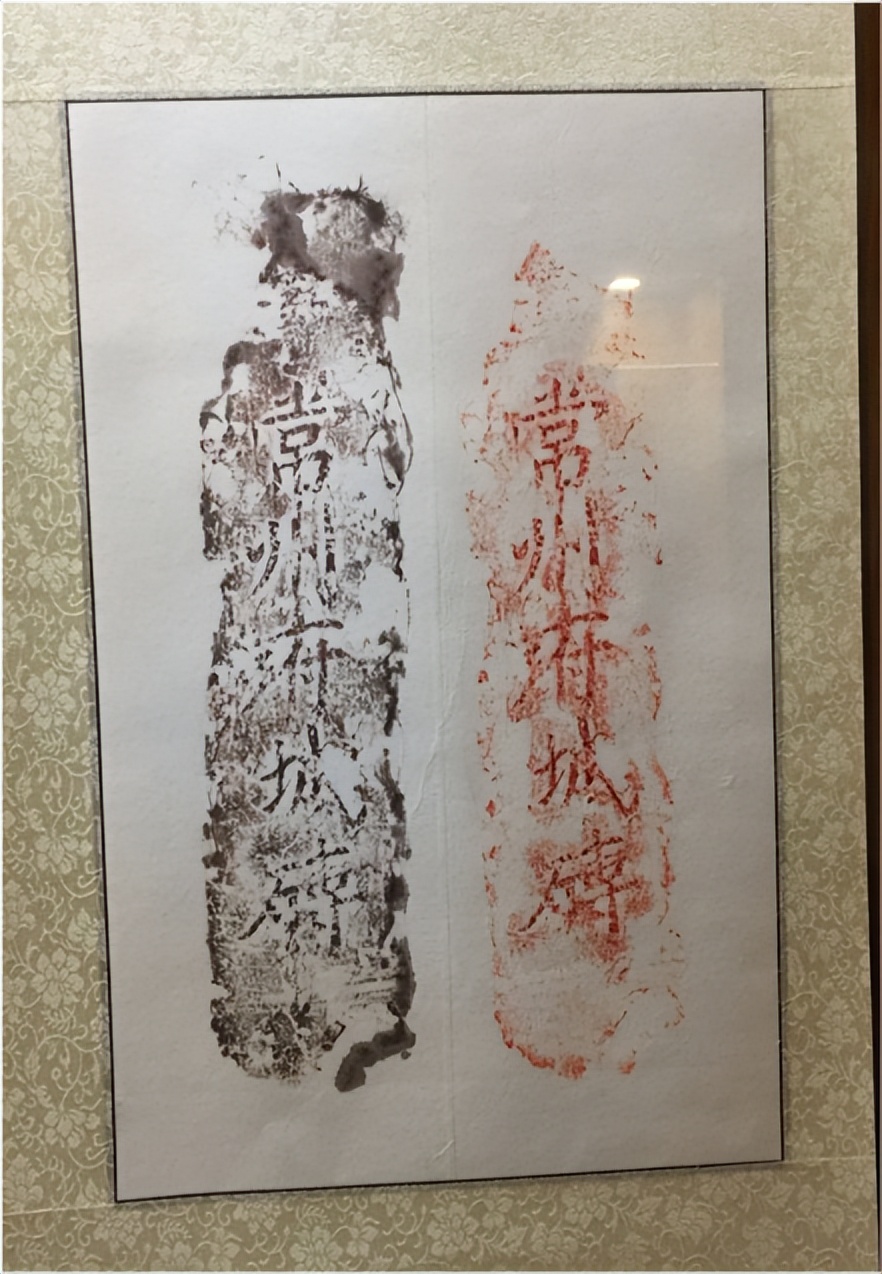 常州府城磚
常州府城磚